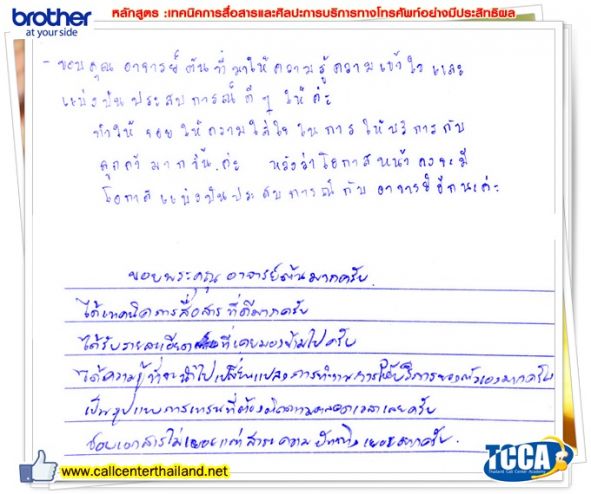 brother
at your side
หลักสูตร :เทคนิคการสื่อสารและศิลปะการบริการทางโทรศัพท์อย่างมีประสิทธิผล
- ขอบคุณ อาจารย์ต้นที่มาให้ความรู้ความเข้าใจ และ
แบ่งปันประสบการณ์ดีๆ ให้ค่ะ
ทำให้ ให้ความใส่ใจในการให้บริการกับ
ลูกค้ามากขึ้นค่ะ หวังว่าโอกาสหน้าคงจะมี
โอกาสแบ่งปันประสบการณ์กับอาจารย์อีกนะค่ะ
ขอบพระคุณ อาจารย์ต้นมากครับ
ได้เทคนิคการสื่อสารที่ดีมากครับ
ได้รับรายละเอียด ที่เคยมองข้ามไปครับ
ได้ความรู้ที่จะนำไปเปลี่ยนแปลงการทำงานการให้บริการของตัวเองมากครับ
เป็นรูปแบบการเทรนที่ต้อง ครับ
ชอบเอกสารไม่เยอะแต่สาระความ เยอะมากครับ.
www.callcenterthailand.net
TCCA
Thailand Call Center Academy